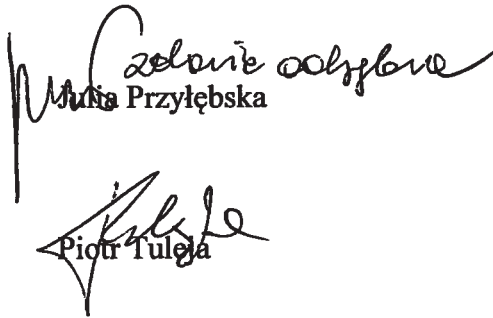 zdanie odrębne
Julia Przyłębska
Piotr Tuleja